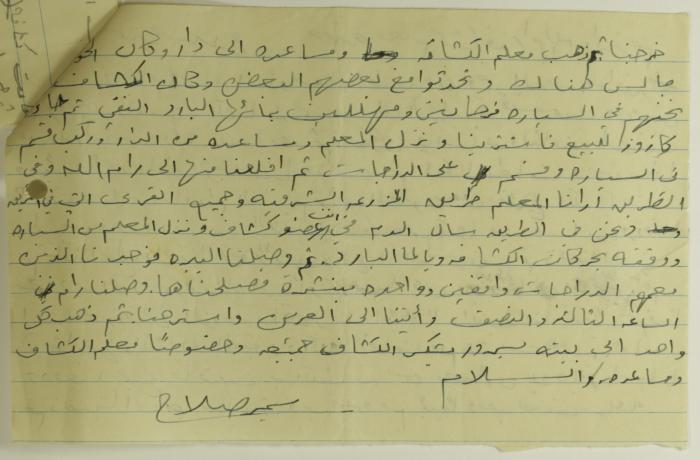 خرجنا ثم ذهب معلم الكشافه ومساعده الى دار وكان
جالس هناك وتحدثوا مع بعضهم البعض وكان الكشاف
بحييهم في السياره فرحانين ومهللين بمائها البارد النقي ثم جاء
كازوز للبيع فأشترينا ونزل المعلم ومساعده من الدار وركب قسم
في السياره وقسم على الدراجات ثم اقلعنا منها الى رام الله وفي
الطريق أرانا المعلم طريق المزرعه الشرقيه وجميع القرى التي في الطريق
ونحن في الطريق سال الدم من عضو كشاف ونزل المعلم من السياره
ووقفه بحركات الكشافه وبالماء البارد ثم وصلنا البيره فوجدنا الذين
معهم الدراجات واقفين وواحده مبنشره فصلحناها وصلنا رام
الساعه الثالثه والنصف وأتينا الى العرين واسترحنا ثم ذهب كل
واحد الى بيته بسرور بشكر الكشاف جميعه وخصوصًا معلم الكشاف
ومساعده والســـلام
سمير صلاح